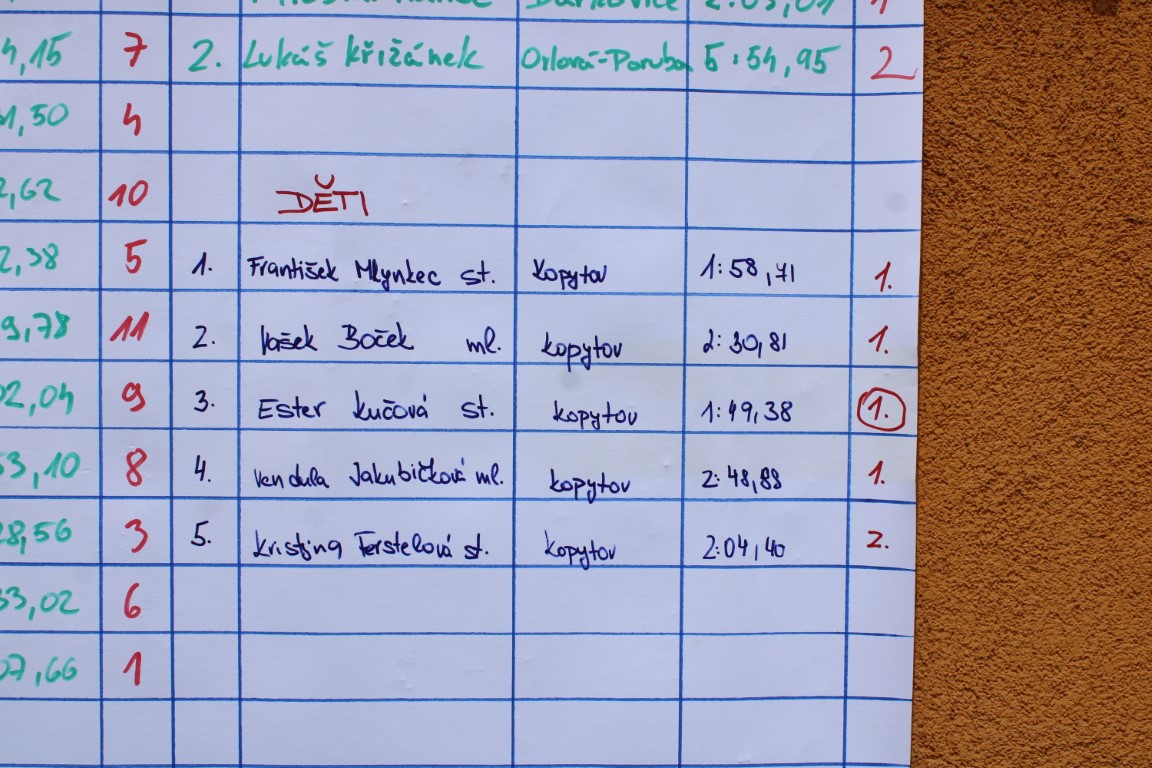 4,15 7 2. Lukáš Křižánek Orlová-Poruba 5:54,95 2
1,50 4
2,62 10 DĚTI
2,38 5 1. František Mlynkec st. Kopytov 1:58,71 1.
9,78 11 2. Vašek Boček ml. Kopytov 2:30,81 1.
02,04 9 3. Ester Kučová st. Kopytov 1:49,38 1.
53,10 8 4. Vendula Jakubíčková ml. Kopytov 2:48,88 1.
28,56 3 5. Kristina Ferstelová st. Kopytov 2:04,40 2.
33,02 6
07,66 1